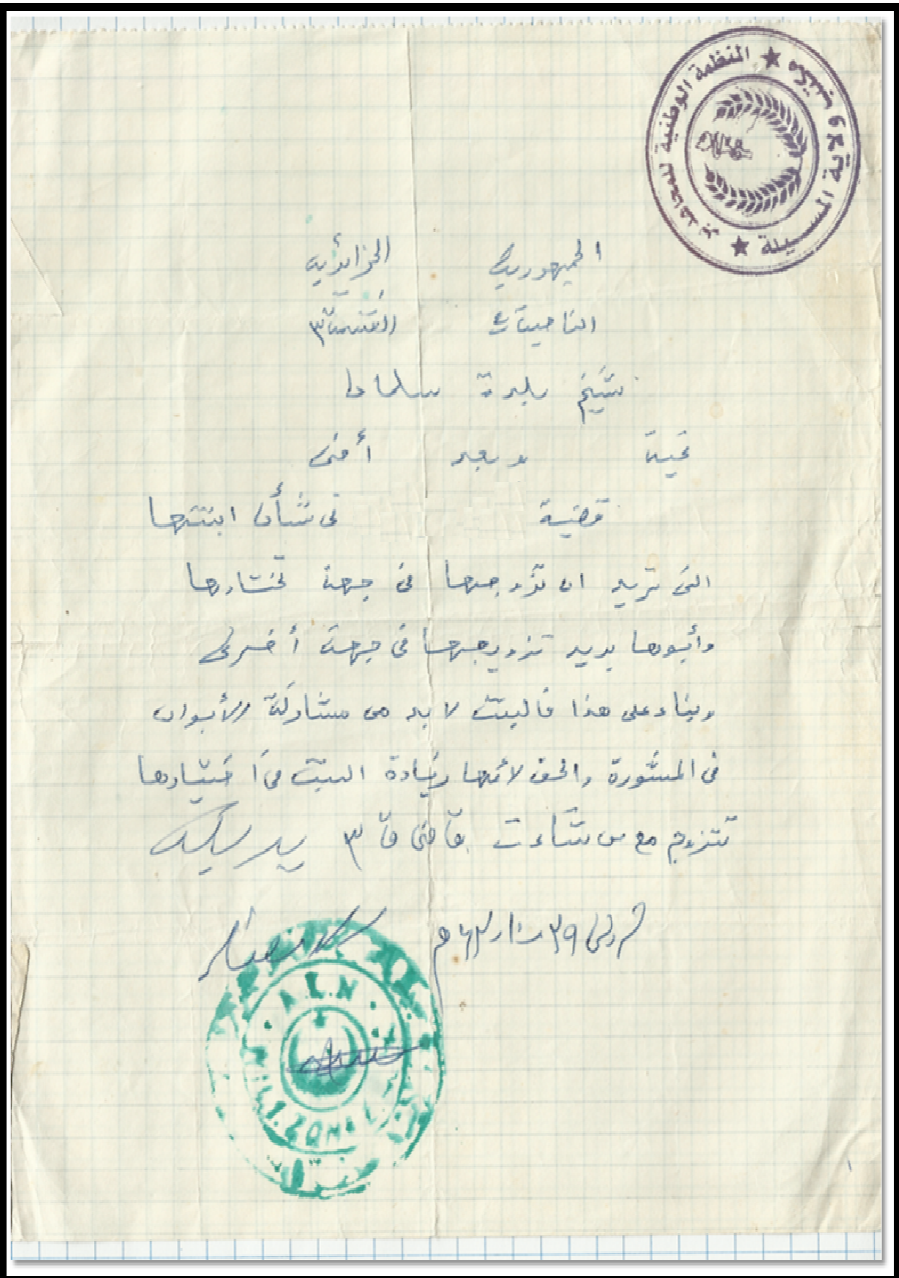 المنظمة الوطنية للمجاهدين ★ ولاية المسيلة ★
الجمهورية الجزائرية
الناحية ٤ القسمة ٣
شيخ بلدة سلمان
تحية وبعد أخي
قضية في شأن ابنتها
التي تريد ان تزوجها في جهة تختارها
وأبوها يريد تزويجها في جهة أخرى
وبناء على هذا فالبنت لا بد من مشاركة الأبوان
في المشورة والحق لأنها زيادة البنت في اختيارها
تتزوج مع من شاءت قاضي ق ٣
A.L.N
ZONE